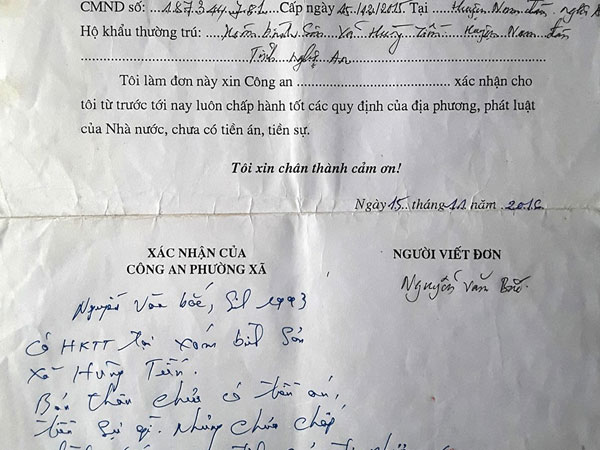 CMND số: ...187344781...Cấp ngày 15/12/2015. Tại ....Huyện Nam đàn, nghệ
Hộ khẩu thường trú: ...Xóm bình Sơn, Xã Hưng Tiến, Huyện Nam đàn
Tỉnh nghệ An
Tôi làm đơn này xin Công an .............................. xác nhận cho
tôi từ trước tới nay luôn chấp hành tốt các quy định của địa phương, phát luật
của Nhà nước, chưa có tiền án, tiền sự.
Tôi xin chân thành cảm ơn!
Ngày 15.. tháng 11 năm .2016
XÁC NHẬN CỦA
CÔNG AN PHƯỜNG XÃ
NGƯỜI VIẾT ĐƠN
Nguyễn Văn Bắc
Nguyễn Văn bắc, 1993
Có HKTT tại xóm bình Sơn
Xã Hưng Tiến.
Bản thân chưa có tiền án,
tiền sự gì. Nhưng chưa chấp